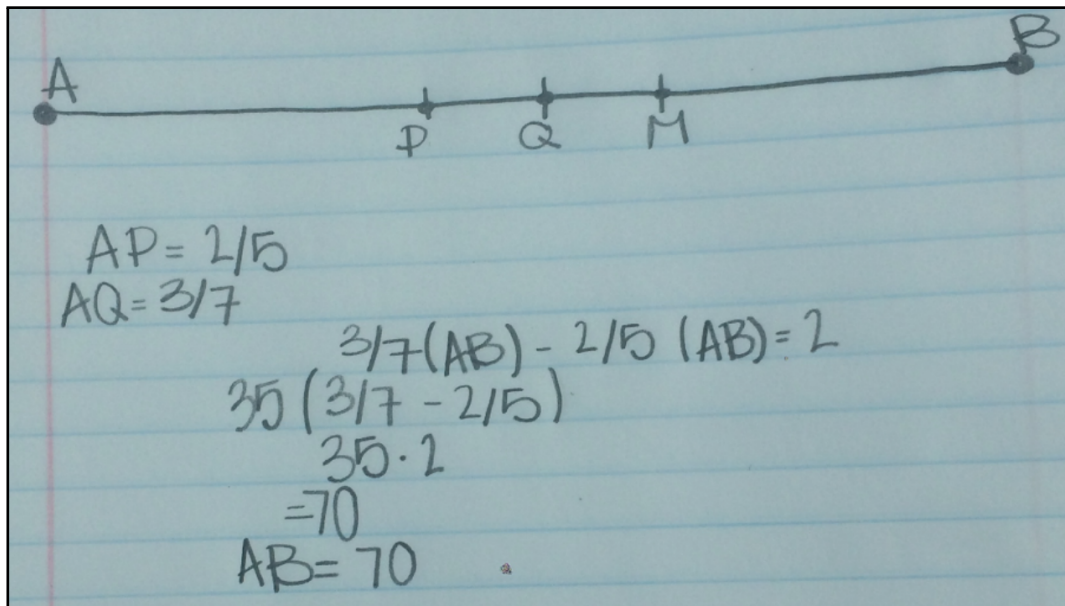 A B
P Q M
AP = 2/5
AQ = 3/7
3/7(AB) - 2/5 (AB) = 2
35 (3/7 - 2/5)
35 · 2
= 70
AB = 70